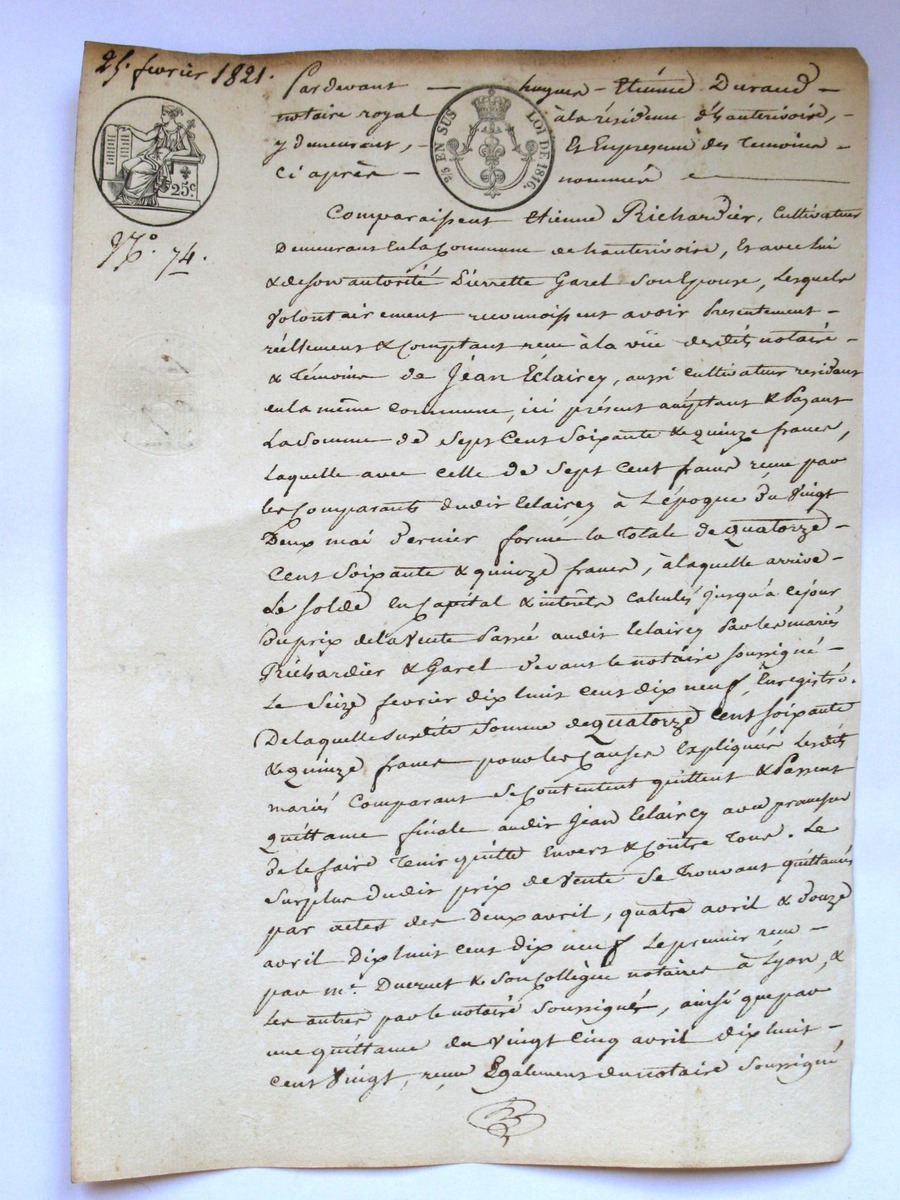 25. fevrier 1821.
Pardevant — hugues - Etiénne Durand —
notaire royal à la résidence d'hauterivoire, -
y demeurant, — Et En presence des Temoins -
Ci après — nommés
25 EN SUS
LOI DE 1816.
25c
N.° 74.
Comparaissent Etienne Richardier, Cultivateur
Demeurant En la Commune de hauterivoire, Et avec lui
& de son autorité Pierrette Garel Son Epouse, Lesquels
Volontairement reconnoissent avoir Presentement -
réellement & Comptant reçu à la vüe desdits notaire -
& Témoins de Jean Eclaircy, aussi Cultivateur residant
en la même Commune, ici présent acceptant & Payant
La Somme de Sept Cent Soixante & quinze francs,
Laquelle avec celle de Sept Cent francs reçue par
les Comparants dudit Eclaircy à L'époque du Vingt
Deux mai Dernier forme la Totale de Quatorze -
Cent Soixante & quinze francs, à laquelle arrive -
Le Solde En Capital & intérêts Calculés jusqu'à Cejour
Du prix de la Vente Passée audit Eclaircy Par les mariés
Richardier & Garel Devant le notaire Soussigné -
Le Seize fevrier dix huit Cent dix neuf, Enregistré.
De laquelle Susdite Somme de Quatorze Cent Soixante
& quinze francs pour les Causes Expliquées Lesdits
mariés Comparant Se Contentent quittent & Passent
Quittance finale audit Jean Eclaircy avec promesse
de le faire Tenir quitte Envers & Contre Tous. Le
Surplus dudit prix de Vente Se Trouvant quittancé
par actes des Deux avril, quatre avril & Douze
avril Dix huit Cent Dix neuf Le premier reçu —
par m.e Ducruet & Son Collègue notaires à Lyon, &
Les autres par le notaire Soussigné, ainsi que par
une quittance du Vingt Cinq avril dix huit —
Cent Vingt, reçue Egalement du notaire Soussigné